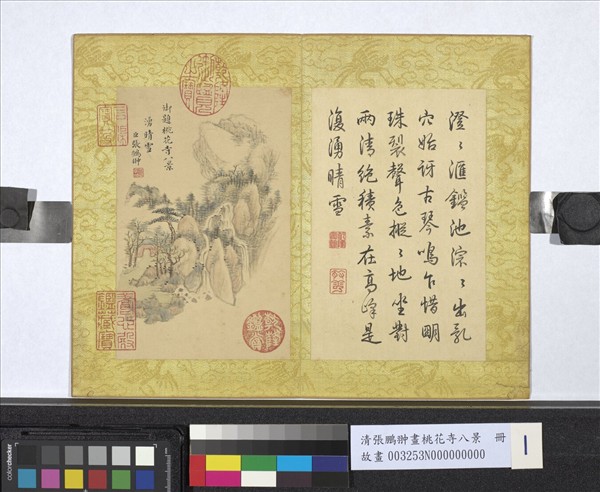 澄〻滙鑑池淙〻出乳
穴始訝古琴鳴乍惜明
珠裂聲色樅〻地坐對
兩清絶積素在高峰是
復湧晴雪
御題桃花寺八景
湧晴雪
臣張鵬翀
清張鵬翀畫桃花寺八景 冊
故畫 003253N000000000
1
colorchecker